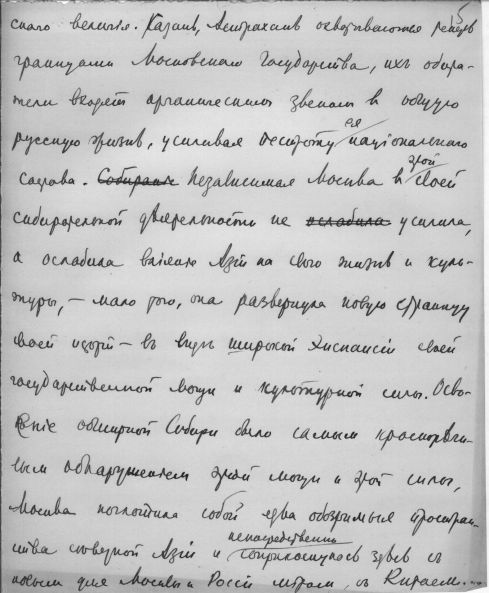 5
скаго величiя. Казань, Астрахань охватываются теперь
границами Московскаго Государства, ихъ обита-
тели входятъ органическимъ звеномъ въ общую
русскую жизнь, усиливая пестроту ея нацiональнаго
состава. Собиранiе Независимая Москва въ этой своей
собирательной дѣятельности не ослабила усилила,
а ослабила влiянiе Азiи на свою жизнь и куль-
туру, – мало того, она развернула новую страницу
своей исторiи – въ видѣ широкой экспансiи своей
государственной мощи и культурной силы. Осво-
енiе обширной Сибири было самымъ краснорѣчи-
вымъ обнаруженiемъ этой мощи и этой силы,
Москва поглотила собой едва обозримыя простран-
ства сѣверной Азiи и непосредственно соприкоснулась здѣсь съ
новымъ для Москвы и Россiи мiромъ, съ Китаемъ...